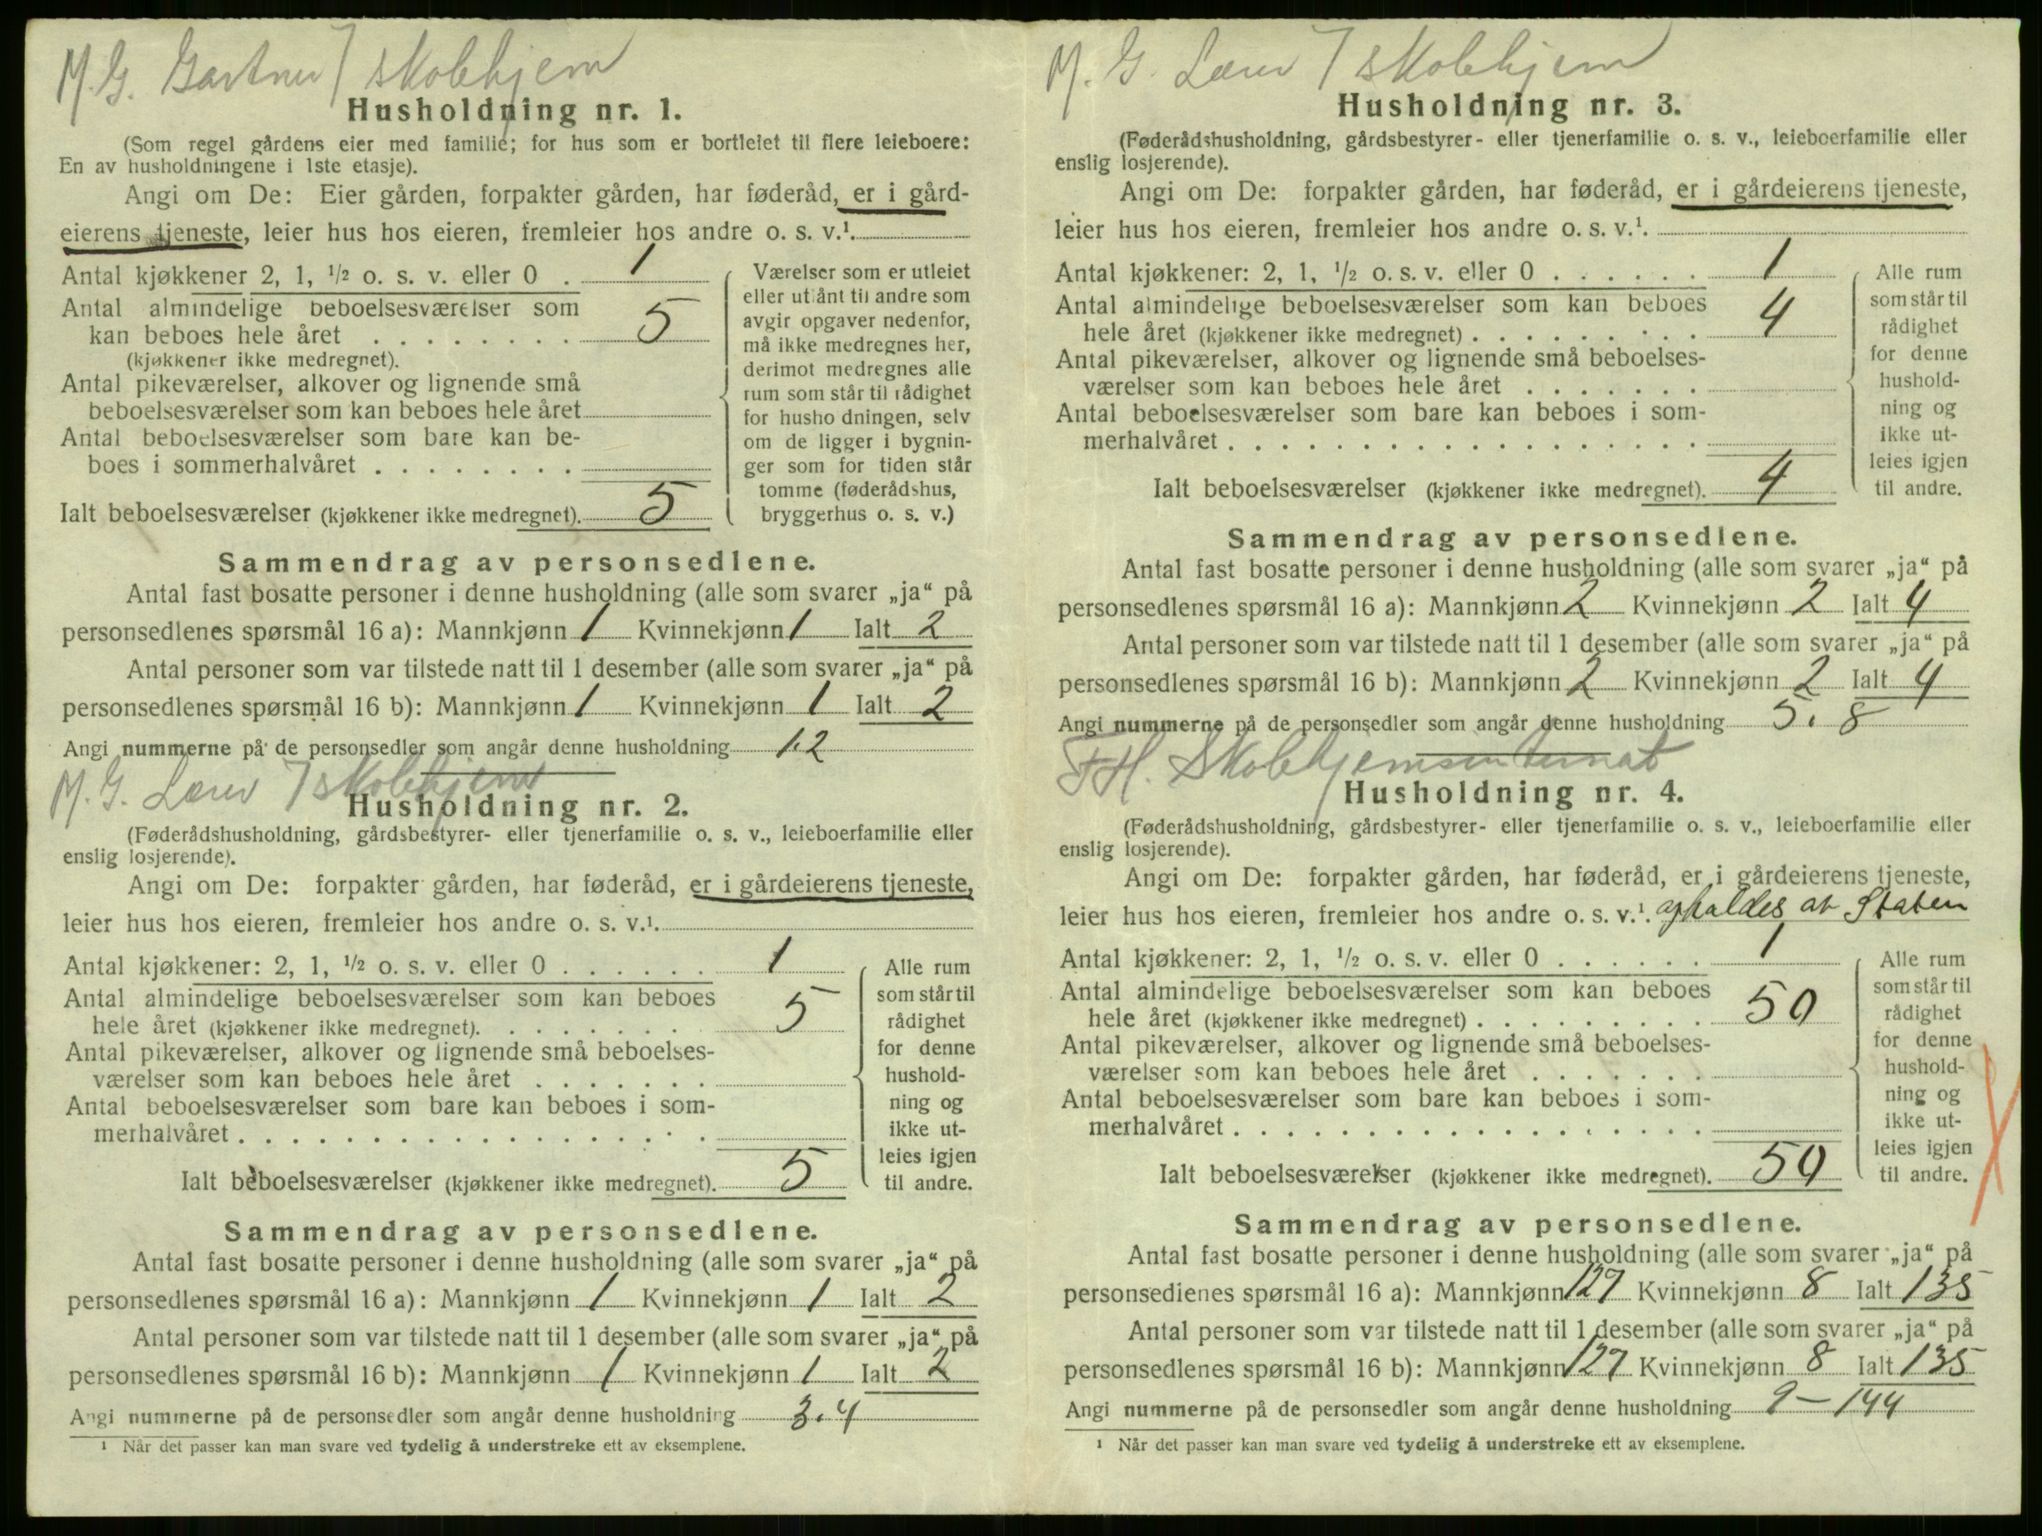 M. G. Gartner / skolehjem
Husholdning nr. 1.
(Som regel gårdens eier med familie; for hus som er bortleiet til flere leieboere:
En av husholdningene i 1ste etasje).
Angi om De: Eier gården, forpakter gården, har føderåd, er i gård-
eierens tjeneste, leier hus hos eieren, fremleier hos andre o. s. v.¹.
Antal kjøkkener 2, 1, ½ o. s. v. eller 0 . 1
Antal almindelige beboelsesværelser som
kan beboes hele året . . . . . . . . 5
(kjøkkener ikke medregnet).
Antal pikeværelser, alkover og lignende små
beboelsesværelser som kan beboes hele året
Antal beboelsesværelser som bare kan be-
boes i sommerhalvåret . . . . . . . .
Ialt beboelsesværelser (kjøkkener ikke medregnet). 5
Værelser som er utleiet
eller utlånt til andre som
avgir opgaver nedenfor,
må ikke medregnes her,
derimot medregnes alle
rum som står til rådighet
for husho dningen, selv
om de ligger i bygnin-
ger som for tiden står
tomme (føderådshus,
bryggerhus o. s. v.)
Sammendrag av personsedlene.
Antal fast bosatte personer i denne husholdning (alle som svarer „ja“ på
personsedlenes spørsmål 16 a): Mannkjønn 1 Kvinnekjønn 1 Ialt 2
Antal personer som var tilstede natt til 1 desember (alle som svarer „ja“ på
personsedlenes spørsmål 16 b): Mannkjønn 1 Kvinnekjønn 1 Ialt 2
Angi nummerne på de personsedler som angår denne husholdning 1.2
M. G. Lærer / skolehjem
Husholdning nr. 2.
(Føderådshusholdning, gårdsbestyrer- eller tjenerfamilie o. s. v., leieboerfamilie eller
enslig losjerende).
Angi om De: forpakter gården, har føderåd, er i gårdeierens tjeneste,
leier hus hos eieren, fremleier hos andre o. s. v.¹.
Antal kjøkkener: 2, 1, ½ o. s. v. eller 0 . . . . . . 1
Antal almindelige beboelsesværelser som kan beboes
hele året (kjøkkener ikke medregnet). . . . . . . . . 5
Antal pikeværelser, alkover og lignende små beboelses-
værelser som kan beboes hele året . . . . . . .
Antal beboelsesværelser som bare kan beboes i som-
merhalvåret . . . . . . . . . . . . . . . . . .
Ialt beboelsesværelser (kjøkkener ikke medregnet). 5
Alle rum
som står til
rådighet
for denne
hushold-
ning og
ikke ut-
leies igjen
til andre.
Sammendrag av personsedlene.
Antal fast bosatte personer i denne husholdning (alle som svarer „ja“ på
personsedlenes spørsmål 16 a): Mannkjønn 1 Kvinnekjønn 1 Ialt 2
Antal personer som var tilstede natt til 1 desember (alle som svarer „ja“ på
personsedlenes spørsmål 16 b): Mannkjønn 1 Kvinnekjønn 1 Ialt 2
Angi nummerne på de personsedler som angår denne husholdning 3.4
¹ Når det passer kan man svare ved tydelig å understreke ett av eksemplene.
M. G. Lærer / skolehjem
Husholdning nr. 3.
(Føderådshusholdning, gårdsbestyrer- eller tjenerfamilie o. s. v., leieboerfamilie eller
enslig losjerende).
Angi om De: forpakter gården, har føderåd, er i gårdeierens tjeneste,
leier hus hos eieren, fremleier hos andre o. s. v.¹.
Antal kjøkkener: 2, 1, ½ o. s. v. eller 0 . . . . . . 1
Antal almindelige beboelsesværelser som kan beboes
hele året (kjøkkener ikke medregnet) . . . . . . . . . 4
Antal pikeværelser, alkover og lignende små beboelses-
værelser som kan beboes hele året . . . . . . .
Antal beboelsesværelser som bare kan beboes i som-
merhalvåret . . . . . . . . . . . . . . . . . .
Ialt beboelsesværelser (kjøkkener ikke medregnet). 4
Alle rum
som står til
rådighet
for denne
hushold-
ning og
ikke ut-
leies igjen
til andre.
Sammendrag av personsedlene.
Antal fast bosatte personer i denne husholdning (alle som svarer „ja“ på
personsedlenes spørsmål 16 a): Mannkjønn 2 Kvinnekjønn 2 Ialt 4
Antal personer som var tilstede natt til 1 desember (alle som svarer „ja“ på
personsedlenes spørsmål 16 b): Mannkjønn 2 Kvinnekjønn 2 Ialt 4
Angi nummerne på de personsedler som angår denne husholdning 5. 8
F.H. Skolehjemsinternat
Husholdning nr. 4.
(Føderådshusholdning, gårdsbestyrer- eller tjenerfamilie o. s. v., leieboerfamilie eller
enslig losjerende).
Angi om De: forpakter gården, har føderåd, er i gårdeierens tjeneste,
leier hus hos eieren, fremleier hos andre o. s. v.¹. opholdes av Staten
Antal kjøkkener: 2, 1, ½ o. s. v. eller 0 . . . . . . 1
Antal almindelige beboelsesværelser som kan beboes
hele året (kjøkkener ikke medregnet) . . . . . . . . . 50
Antal pikeværelser, alkover og lignende små beboelses-
værelser som kan beboes hele året . . . . . . .
Antal beboelsesværelser som bare kan beboes i som-
merhalvåret . . . . . . . . . . . . . . . . . .
Ialt beboelsesværelser (kjøkkener ikke medregnet). 50
Alle rum
som står til
rådighet
for denne
hushold-
ning og
ikke ut-
leies igjen
til andre.
Sammendrag av personsedlene.
Antal fast bosatte personer i denne husholdning (alle som svarer „ja“ på
personsedlenes spørsmål 16 a): Mannkjønn 127 Kvinnekjønn 8 Ialt 135
Antal personer som var tilstede natt til 1 desember (alle som svarer „ja“ på
personsedlenes spørsmål 16 b): Mannkjønn 127 Kvinnekjønn 8 Ialt 135
Angi nummerne på de personsedler som angår denne husholdning 9–144
¹ Når det passer kan man svare ved tydelig å understreke ett av eksemplene.